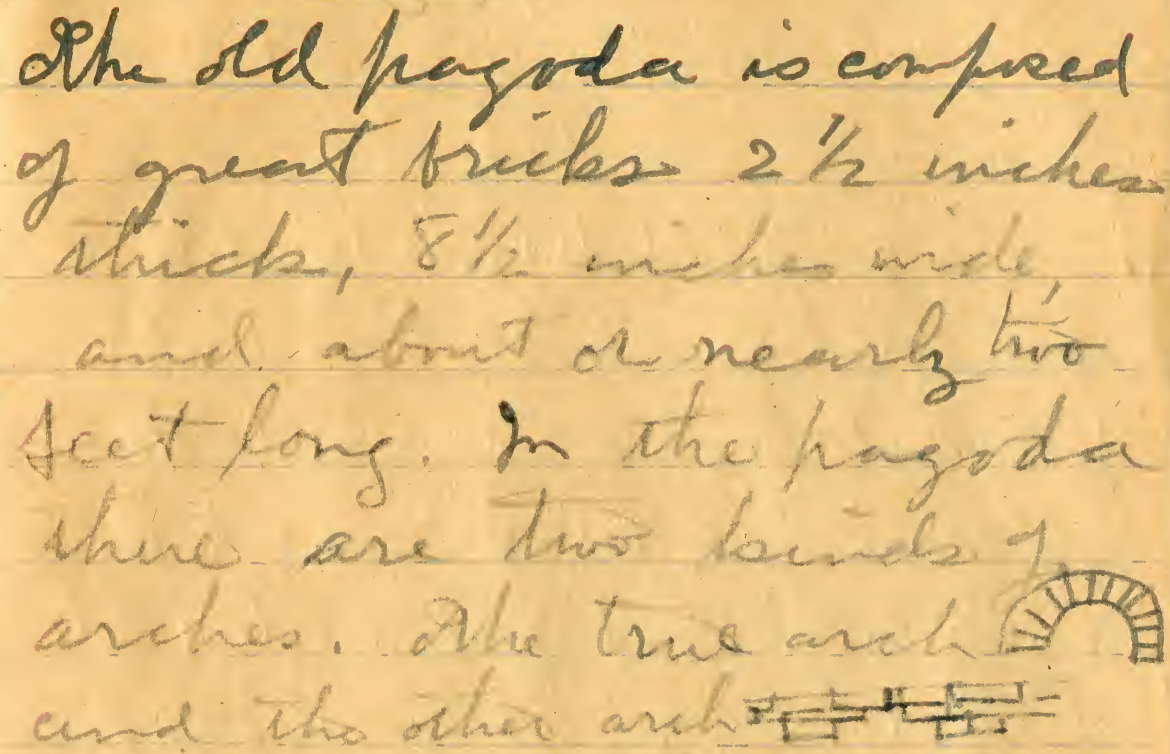 The old pagoda is composed
of great bricks 2 1/2 inches
thick, 8 1/2 inches wide,
and about or nearly two
feet long. In the pagoda
there are two kinds of
arches. The true arch
and the other arch